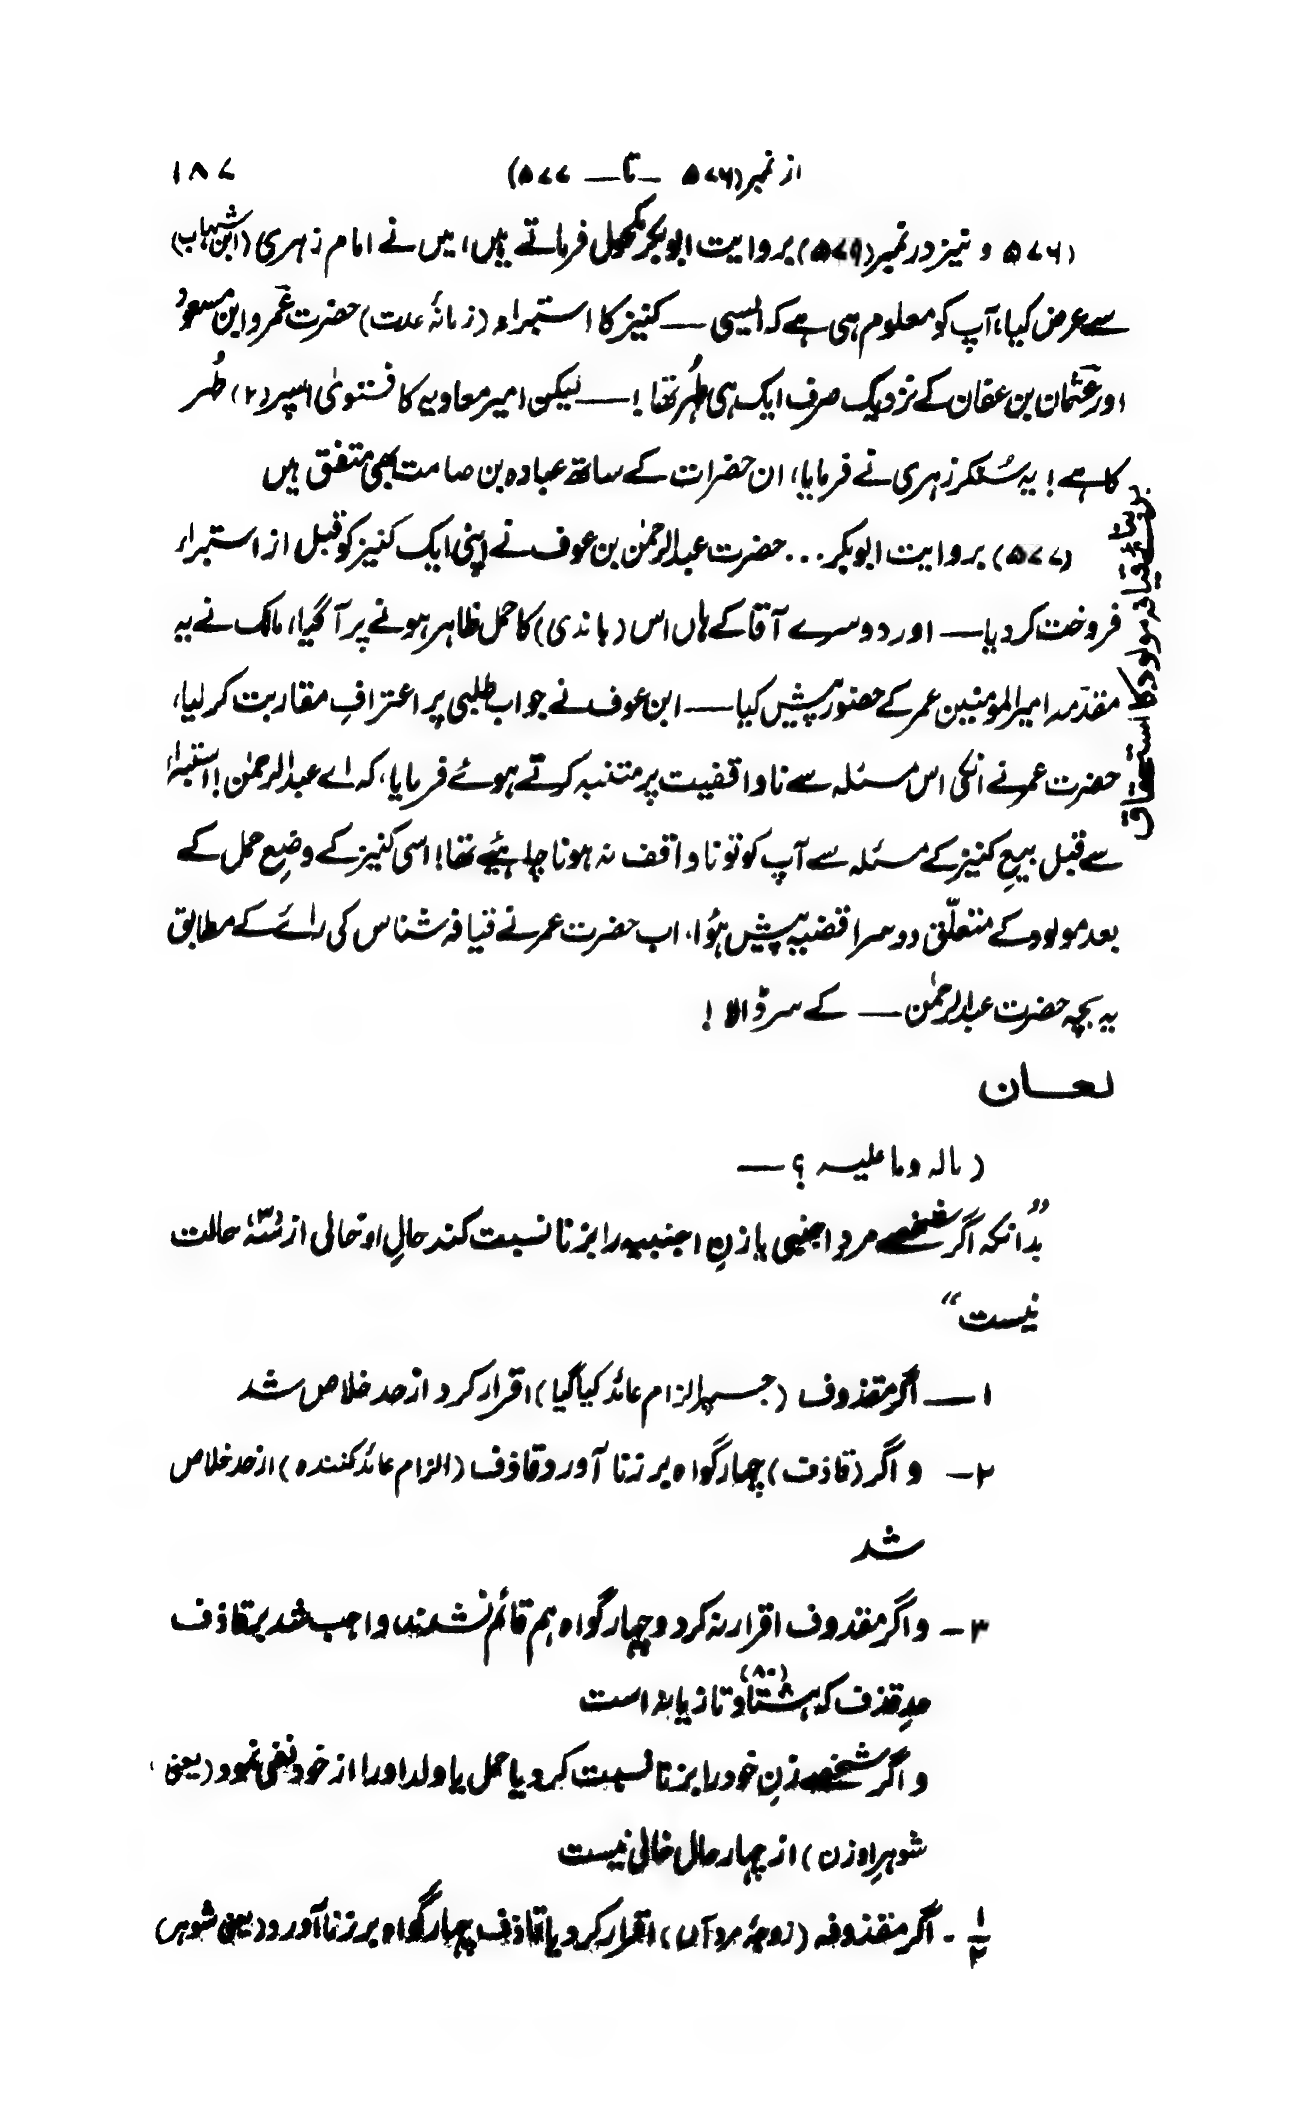 از نمبر (۵۷۶ — تا — ۵۷۷)
۱۸۷
(۵۷۶ و نیز در نمبر (۵۷۹) بروایت ابوبکر مکحول فرماتے ہیں، میں نے امام زہری (ابن شہاب)
سے عرض کیا، آپ کو معلوم ہی ہے کہ ایسی — کنیز کا استبراء (زمانۂ عدت) حضرت عمر و ابن مسعود
اور عثمان بن عفان کے نزدیک صرف ایک ہی طُہر تھا! — لیکن امیر معاویہ کا فتویٰ اسپر (۲) طُہر
کا ہے! یہ سُنکر زہری نے فرمایا، ان حضرات کے ساتھ عبادہ بن صامت بھی متفق ہیں
(۵۷۷) بروایت ابوبکر... حضرت عبدالرحمٰن بن عوف نے اپنی ایک کنیز کو قبل از استبراء
فروخت کر دیا — اور دوسرے آقا کے ہاں اس (باندی) کا حمل ظاہر ہونے پر آ گیا، مالک نے یہ
مقدّمہ امیر المومنین عمر کے حضور پیش کیا — ابن عوف نے جواب طلبی پر اعترافِ مقاربت کر لیا،
حضرت عمر نے انکی اس مسئلہ سے ناواقفیت پر متنبہ کرتے ہوئے فرمایا، کہ اے عبدالرحمٰن! استبراء
سے قبل بیعِ کنیز کے مسئلہ سے آپ کو تو ناواقف نہ ہونا چاہیئے تھا! اسی کنیز کے وضعِ حمل کے
بعد مولود کے متعلّق دوسرا قضیہ پیش ہؤا، اب حضرت عمر نے قیافہ شناس کی رائے کے مطابق
یہ بچہ حضرت عبدالرحمٰن — کے سر ڈالا!
بر بنائے قیافہ مولود کا استحقاق
لعان
(مالہ وماعلیہ؟ —
”بدانکہ اگر شخصے مرد اجنبی یا زنِ اجنبیہ را بزنا نسبت کند حالِ او خالی از سۂ حالت
نیست“
۱ — اگر مقذوف (جسپر الزام عائد کیا گیا) اقرار کرد از حد خلاص شد
۲ — و اگر (قاذف) چہار گواہ بر زنا آورد قاذف (الزام عائد کنندہ) از حد خلاص
شد
۳ — و اگر مقذوف اقرار نہ کرد و چہار گواہ ہم قائم نشدند واجب شد بر قاذف
حدِ قذف کہ ہشتاد (۸۰) تازیانہ است
و اگر شخصے زنِ خود را بزنا نسبت کرد یا حمل یا ولد او را از خود نفی نمود (یعنی
شوہرِ او زن) از چہار حال خالی نیست
۱/۲ - اگر مقذوفہ (زوجۂ مرد آں) اقرار کرد یا قاذف چہار گواہ بر زنا آورد (یعنی شوہر)